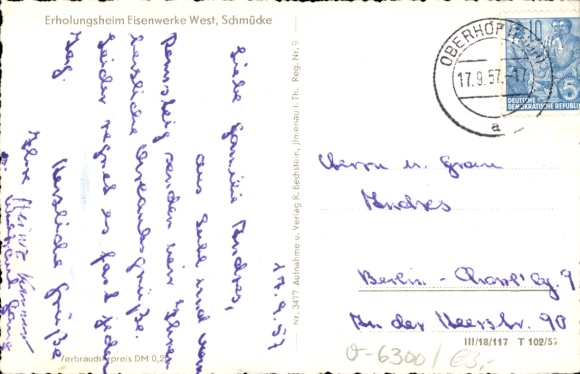 Erholungsheim Eisenwerke West, Schmücke
17.9.57
Liebe Familie Andres,
aus Suhl und vom
Rennsteig senden wir Ihnen
herzliche Urlaubsgrüße.
Leider regnet es fast jeden
Tag.
Herzliche Grüße
Ihre Heinz
Nr. 3477 Aufnahme u. Verlag R. Bechstein, Jlmenau i. Th. Reg. Nr. 9
Verbraucherpreis DM 0,2
OBERHOF
17.9.57
a
10
DEUTSCHE
DEMOKRATISCHE REPUBLIK
5
Herrn u. Frau
Andres
Berlin - Charl'bg. 9
An der Heerstr. 90
III/18/117 T 102/57
v-6300/€3,-